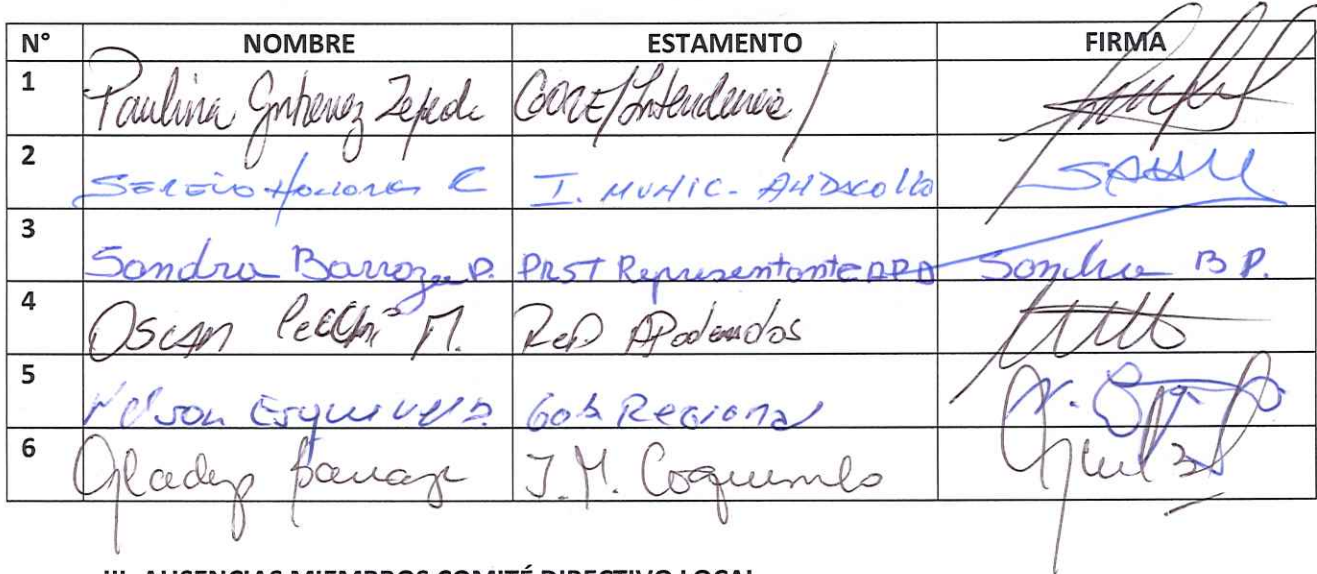 N° NOMBRE ESTAMENTO FIRMA
1 Paulina Gutierrez Zepeda CORE/Intendencia/
2 Sergio Honores C I. MUNIC. ANDACOLLO
3 Sandra Barroza P. PRST Representante APR Sandra B P.
4 Oscar M. Red Apoderados
5 Nelson Esquivel D. Gob Regional
6 Gladys Barraza I.M. Coquimbo
III. AUSENCIAS MIEMBROS COMITÉ DIRECTIVO LOCAL